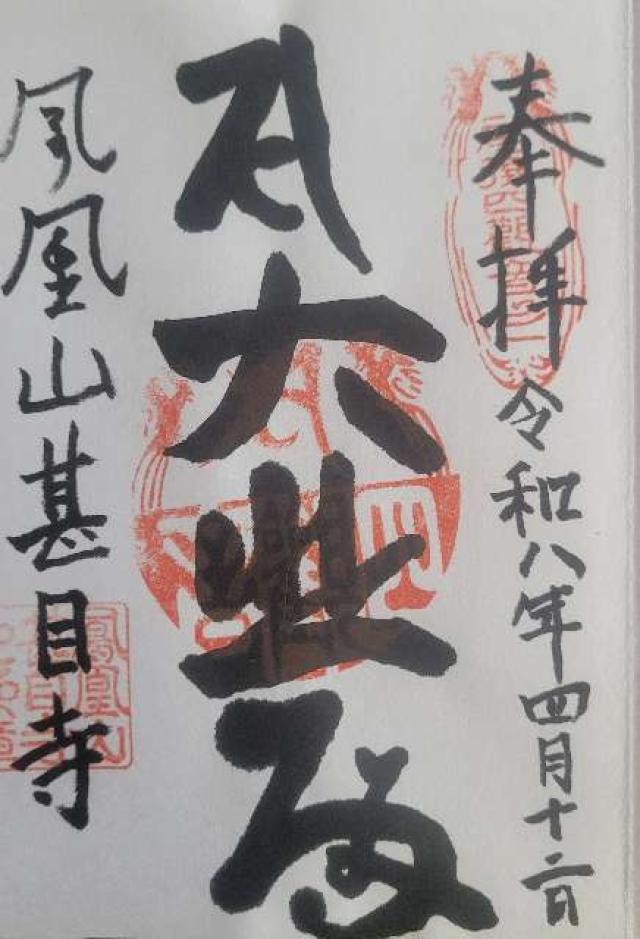 奉拝 令和八年四月十二日
大悲殿
鳳凰山甚目寺